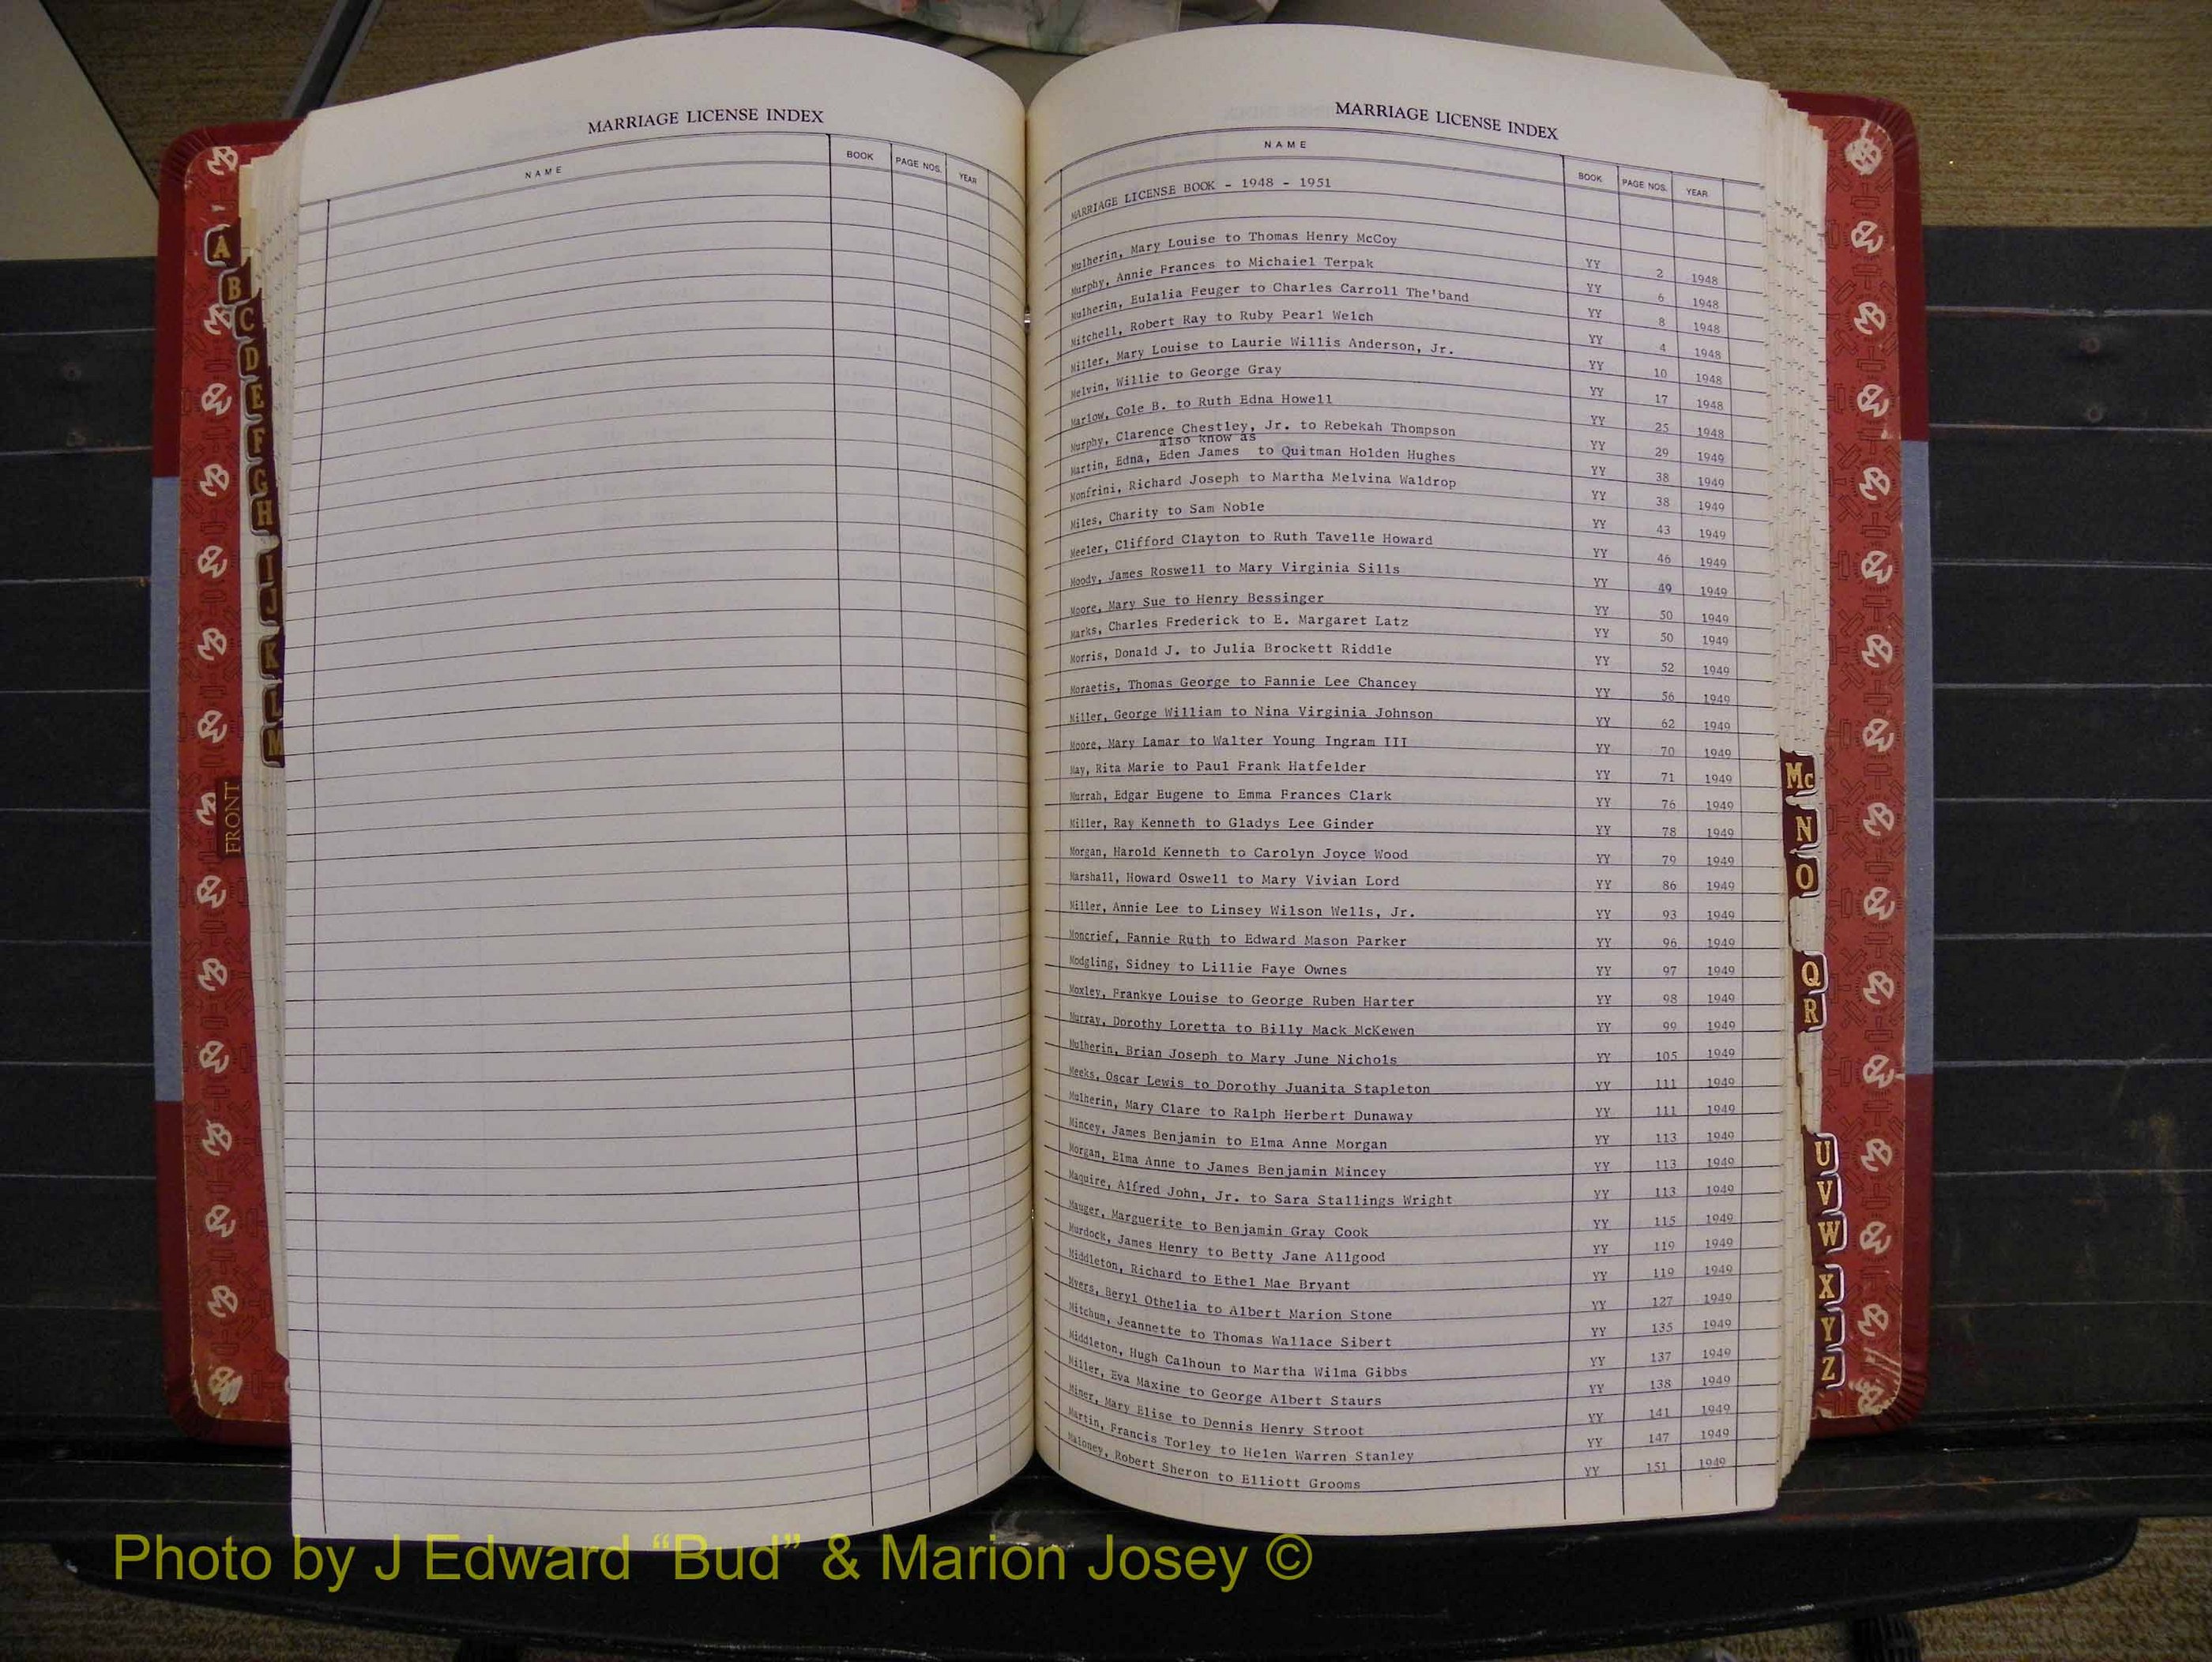 MARRIAGE LICENSE INDEX
NAME BOOK PAGE NOS. YEAR
MARRIAGE LICENSE INDEX
NAME BOOK PAGE NOS. YEAR
MARRIAGE LICENSE BOOK - 1948 - 1951
Mulherin, Mary Louise to Thomas Henry McCoy YY 2 1948
Murphy, Annie Frances to Michaiel Terpak YY 6 1948
Mulherin, Eulalia Feuger to Charles Carroll The'band YY 8 1948
Mitchell, Robert Ray to Ruby Pearl Welch YY 4 1948
Miller, Mary Louise to Laurie Willis Anderson, Jr. YY 10 1948
Melvin, Willie to George Gray YY 17 1948
Marlow, Cole B. to Ruth Edna Howell YY 25 1948
Murphy, Clarence Chestley, Jr. to Rebekah Thompson YY 29 1949
also know as
Martin, Edna, Eden James to Quitman Holden Hughes YY 38 1949
Monfrini, Richard Joseph to Martha Melvina Waldrop YY 38 1949
Miles, Charity to Sam Noble YY 43 1949
Meeler, Clifford Clayton to Ruth Tavelle Howard YY 46 1949
Moody, James Roswell to Mary Virginia Sills YY 49 1949
Moore, Mary Sue to Henry Bessinger YY 50 1949
Marks, Charles Frederick to E. Margaret Latz YY 50 1949
Morris, Donald J. to Julia Brockett Riddle YY 52 1949
Moraetis, Thomas George to Fannie Lee Chancey YY 56 1949
Miller, George William to Nina Virginia Johnson YY 62 1949
Moore, Mary Lamar to Walter Young Ingram III YY 70 1949
May, Rita Marie to Paul Frank Hatfelder YY 71 1949
Murrah, Edgar Eugene to Emma Frances Clark YY 76 1949
Miller, Ray Kenneth to Gladys Lee Ginder YY 78 1949
Morgan, Harold Kenneth to Carolyn Joyce Wood YY 79 1949
Marshall, Howard Oswell to Mary Vivian Lord YY 86 1949
Miller, Annie Lee to Linsey Wilson Wells, Jr. YY 93 1949
Moncrief, Fannie Ruth to Edward Mason Parker YY 96 1949
Modgling, Sidney to Lillie Faye Ownes YY 97 1949
Moxley, Frankye Louise to George Ruben Harter YY 98 1949
Murray, Dorothy Loretta to Billy Mack McKewen YY 99 1949
Mulherin, Brian Joseph to Mary June Nichols YY 105 1949
Meeks, Oscar Lewis to Dorothy Juanita Stapleton YY 111 1949
Mulherin, Mary Clare to Ralph Herbert Dunaway YY 111 1949
Mincey, James Benjamin to Elma Anne Morgan YY 113 1949
Morgan, Elma Anne to James Benjamin Mincey YY 113 1949
Maguire, Alfred John, Jr. to Sara Stallings Wright YY 113 1949
Mauger, Marguerite to Benjamin Gray Cook YY 115 1949
Murdock, James Henry to Betty Jane Allgood YY 119 1949
Middleton, Richard to Ethel Mae Bryant YY 119 1949
Myers, Beryl Othelia to Albert Marion Stone YY 127 1949
Mitchum, Jeannette to Thomas Wallace Sibert YY 135 1949
Middleton, Hugh Calhoun to Martha Wilma Gibbs YY 137 1949
Miller, Eva Maxine to George Albert Staurs YY 138 1949
Miner, Mary Elise to Dennis Henry Stroot YY 141 1949
Martin, Francis Torley to Helen Warren Stanley YY 147 1949
Maloney, Robert Sheron to Elliott Grooms YY 151 1949
A
B
C
D
E
F
G
H
I
J
K
L
M
FRONT
Mc
N
O
Q
R
U
V
W
X
Y
Z
Photo by J Edward “Bud” & Marion Josey ©